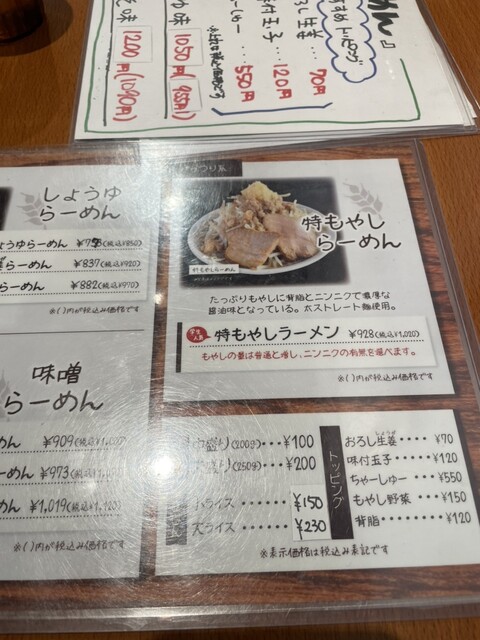 めん』
トッピング
おろし生姜… 70円
味付玉子 120円
ちゃーしゅー … 550円
1050円 (955円)
1200円 (1090円)
しょうゆ
らーめん
ょうゆらーめん ¥773(税込¥850)
らーめん ¥837(税込¥920)
らーめん ¥882(税込¥970)
※( )内が税込み価格です
味噌
らーめん
めん ¥909(税込¥1,000)
ーめん ¥973(税込
めん ¥1,019(税込¥1,120)
※( )内が税込み価格です
がっつり系
特もやしらーめん
特もやし
らーめん
たっぷりもやしに背脂とニンニクで濃厚な
醤油味となっている。太ストレート麺使用。
学生人気 特もやしラーメン ¥928(税込¥1,020)
もやしの量は普通と増し、ニンニクの有無を選べます。
※( )内が税込み価格です
中盛り(200g)… ¥100
大盛り(250g)… ¥200
小ライス ¥150
大ライス ¥230
トッピング
おろし生姜 ¥70
味付玉子 ¥120
ちゃーしゅー ¥550
もやし野菜 ¥150
背脂 ¥120
※表示価格は税込み表記です